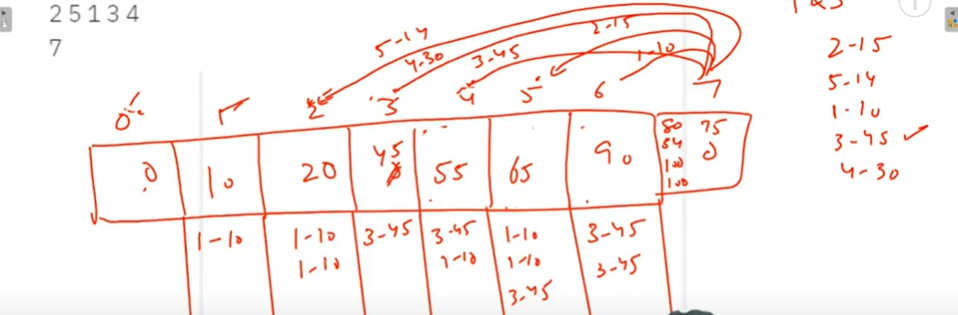 2 5 1 3 4
7
5-14
4-30
3-45
2-15
1-10
0 1 2 3 4 5 6 7
0 10 20 45 55 65 90 80 75
54 0
100
100
1-10 1-10 3-45 3-45 1-10 3-45
1-10 1-10 1-10 3-45
3-45
2-15
5-14
1-10
3-45 ✓
4-30